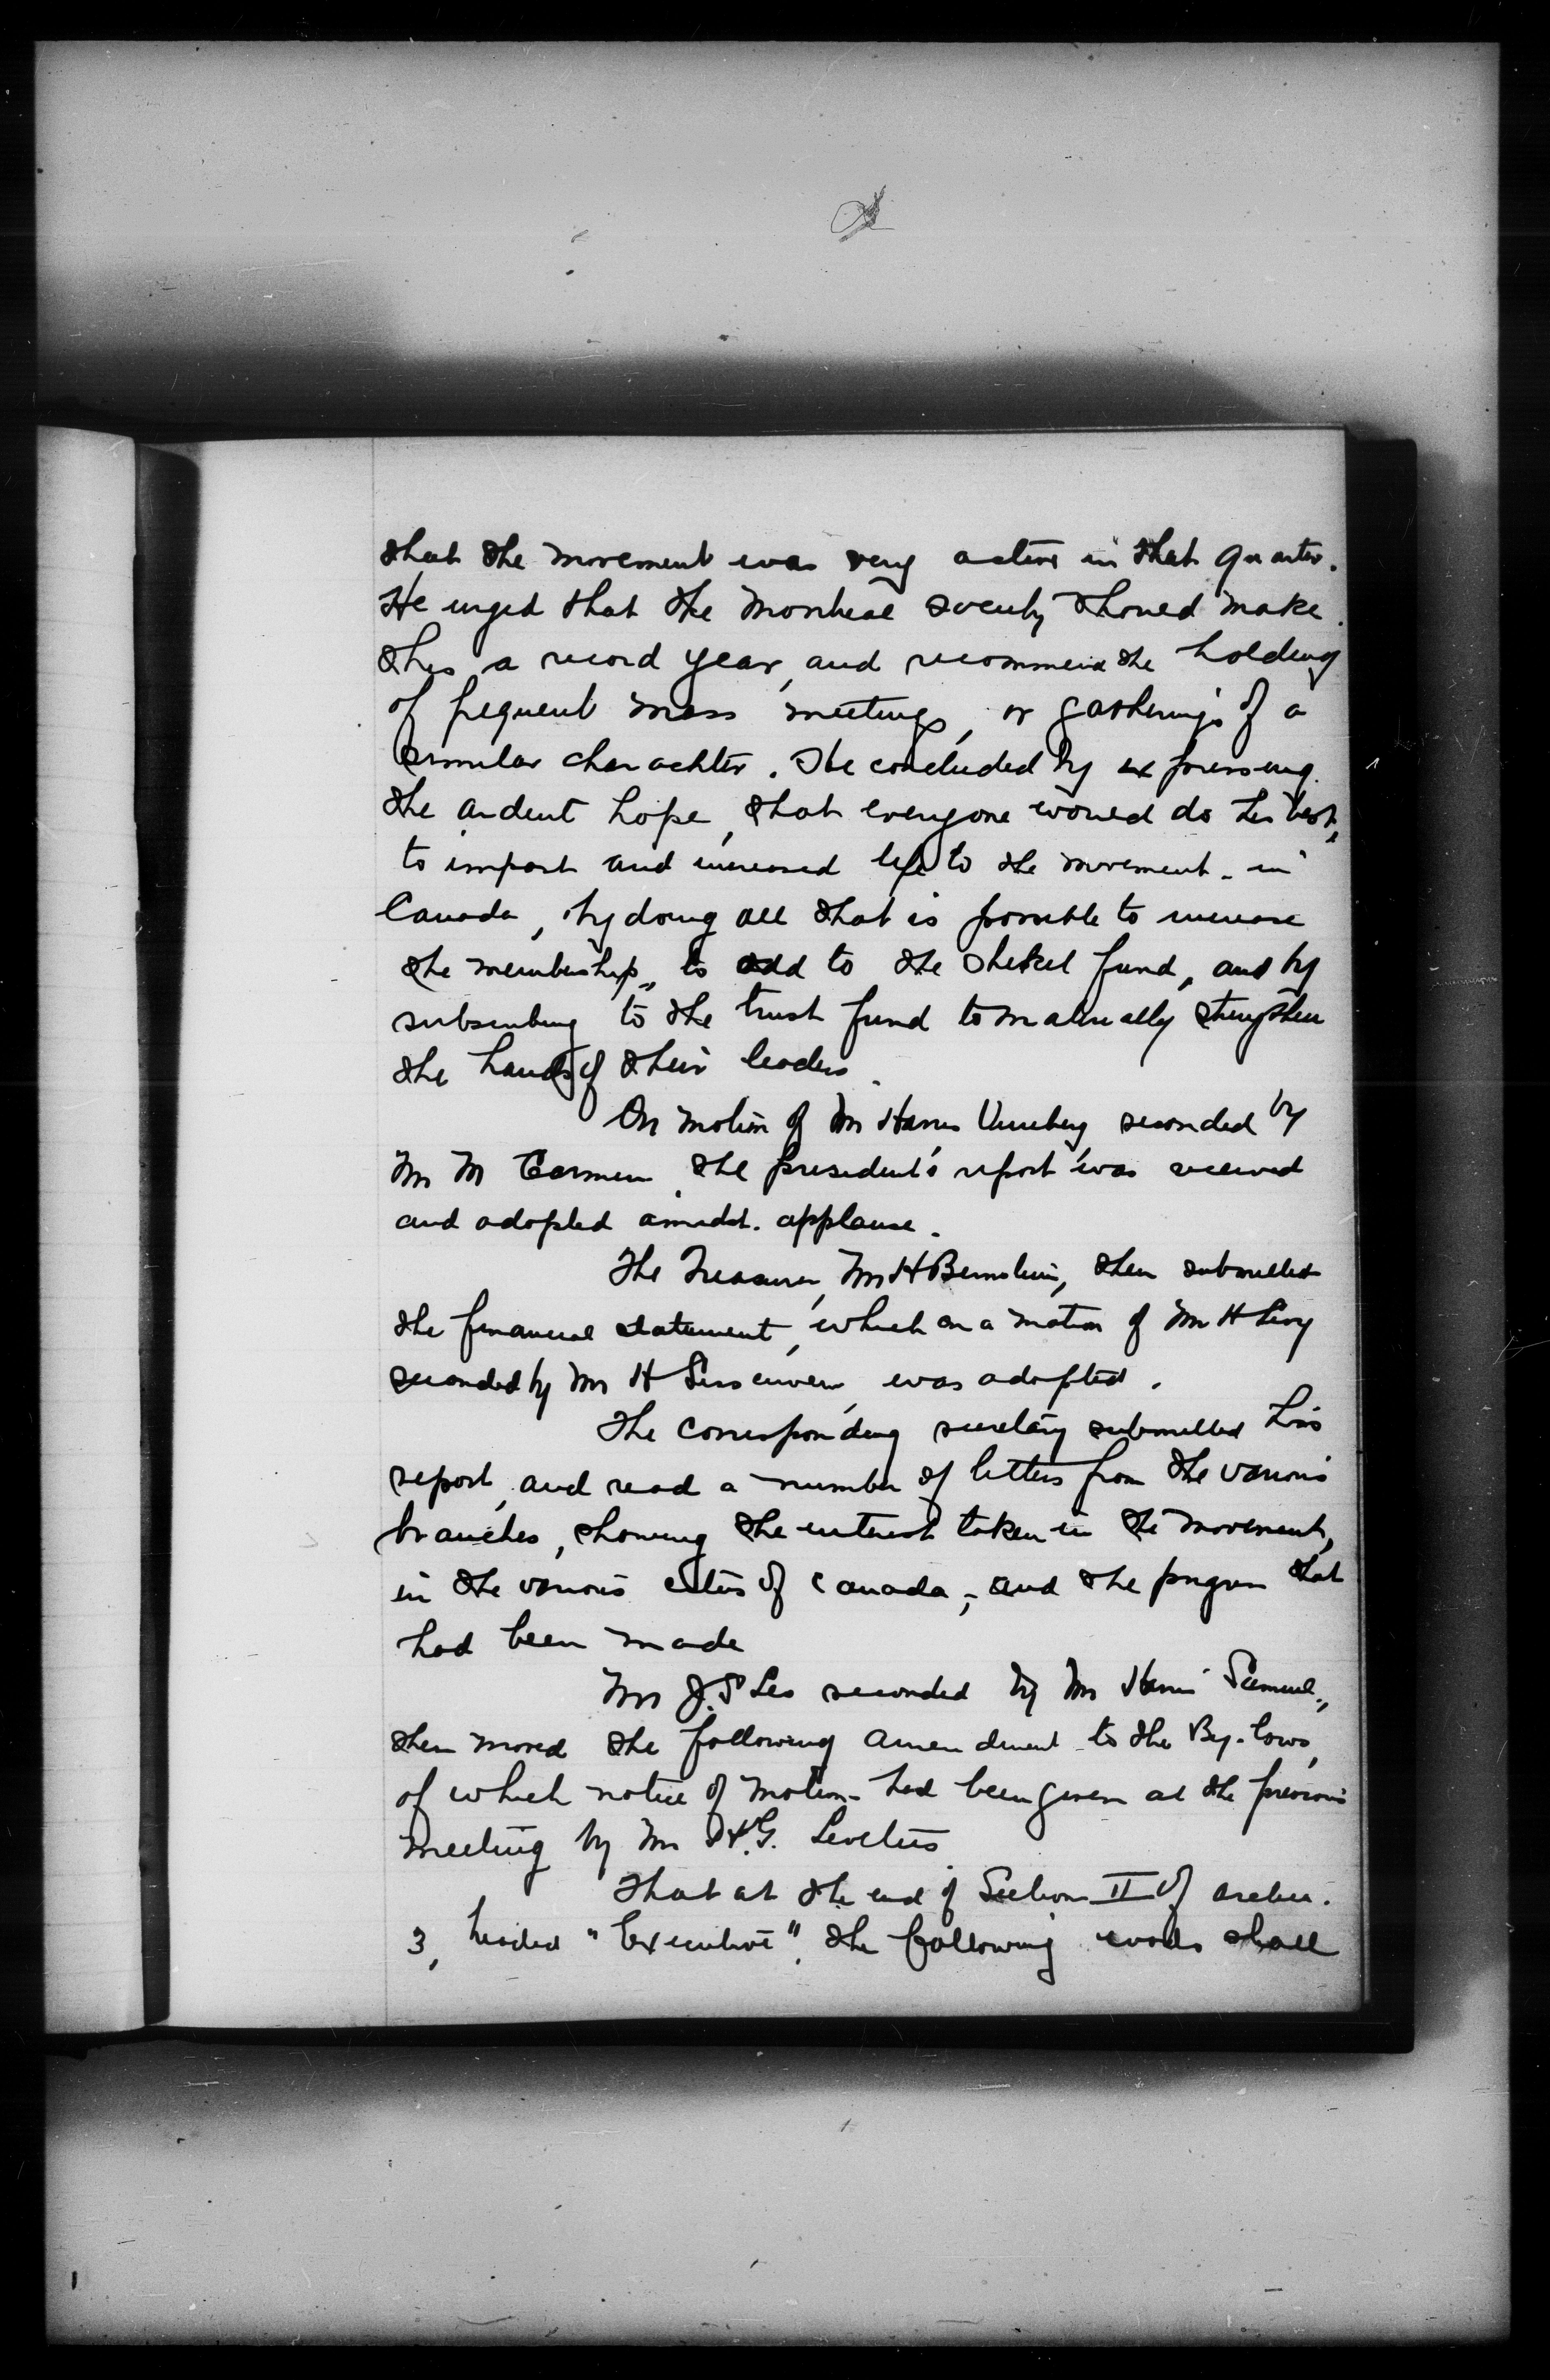 that the movement was very active in that quarter.
He urged that the Montreal society should make
this a record year, and recommend the holding
of frequent mass meetings, or gatherings of a
similar charachter. He concluded by expressing
the ardent hope, that everyone would do his best,
to impart and increased life to the movement in
Canada, by doing all that is possible to increase
the membership, to add to the shekel fund, and by
subscribing to the trust fund to materially strengthen
the hands of their leaders.
On motion of Mr Harris Vineberg seconded by
Mr M the president's report was received
and adopted amidst applause.
The Treasurer, Mr H Bernstein, then submitted
the financial statement, which on a motion of Mr H Levy
seconded by Mr H was adopted.
The corresponding secretary submitted his
report, and read a number of letters from the various
branches, showing the interest taken in the movement,
in the various cities of Canada, and the progress that
had been made
Mr J. S Leo seconded by Mr Harris Samuel,
then moved the following amendment to the By-laws,
of which notice of motion had been given at the previous
meeting by Mr
That at the end of Section II of article
3, headed "Executive", the following words shall